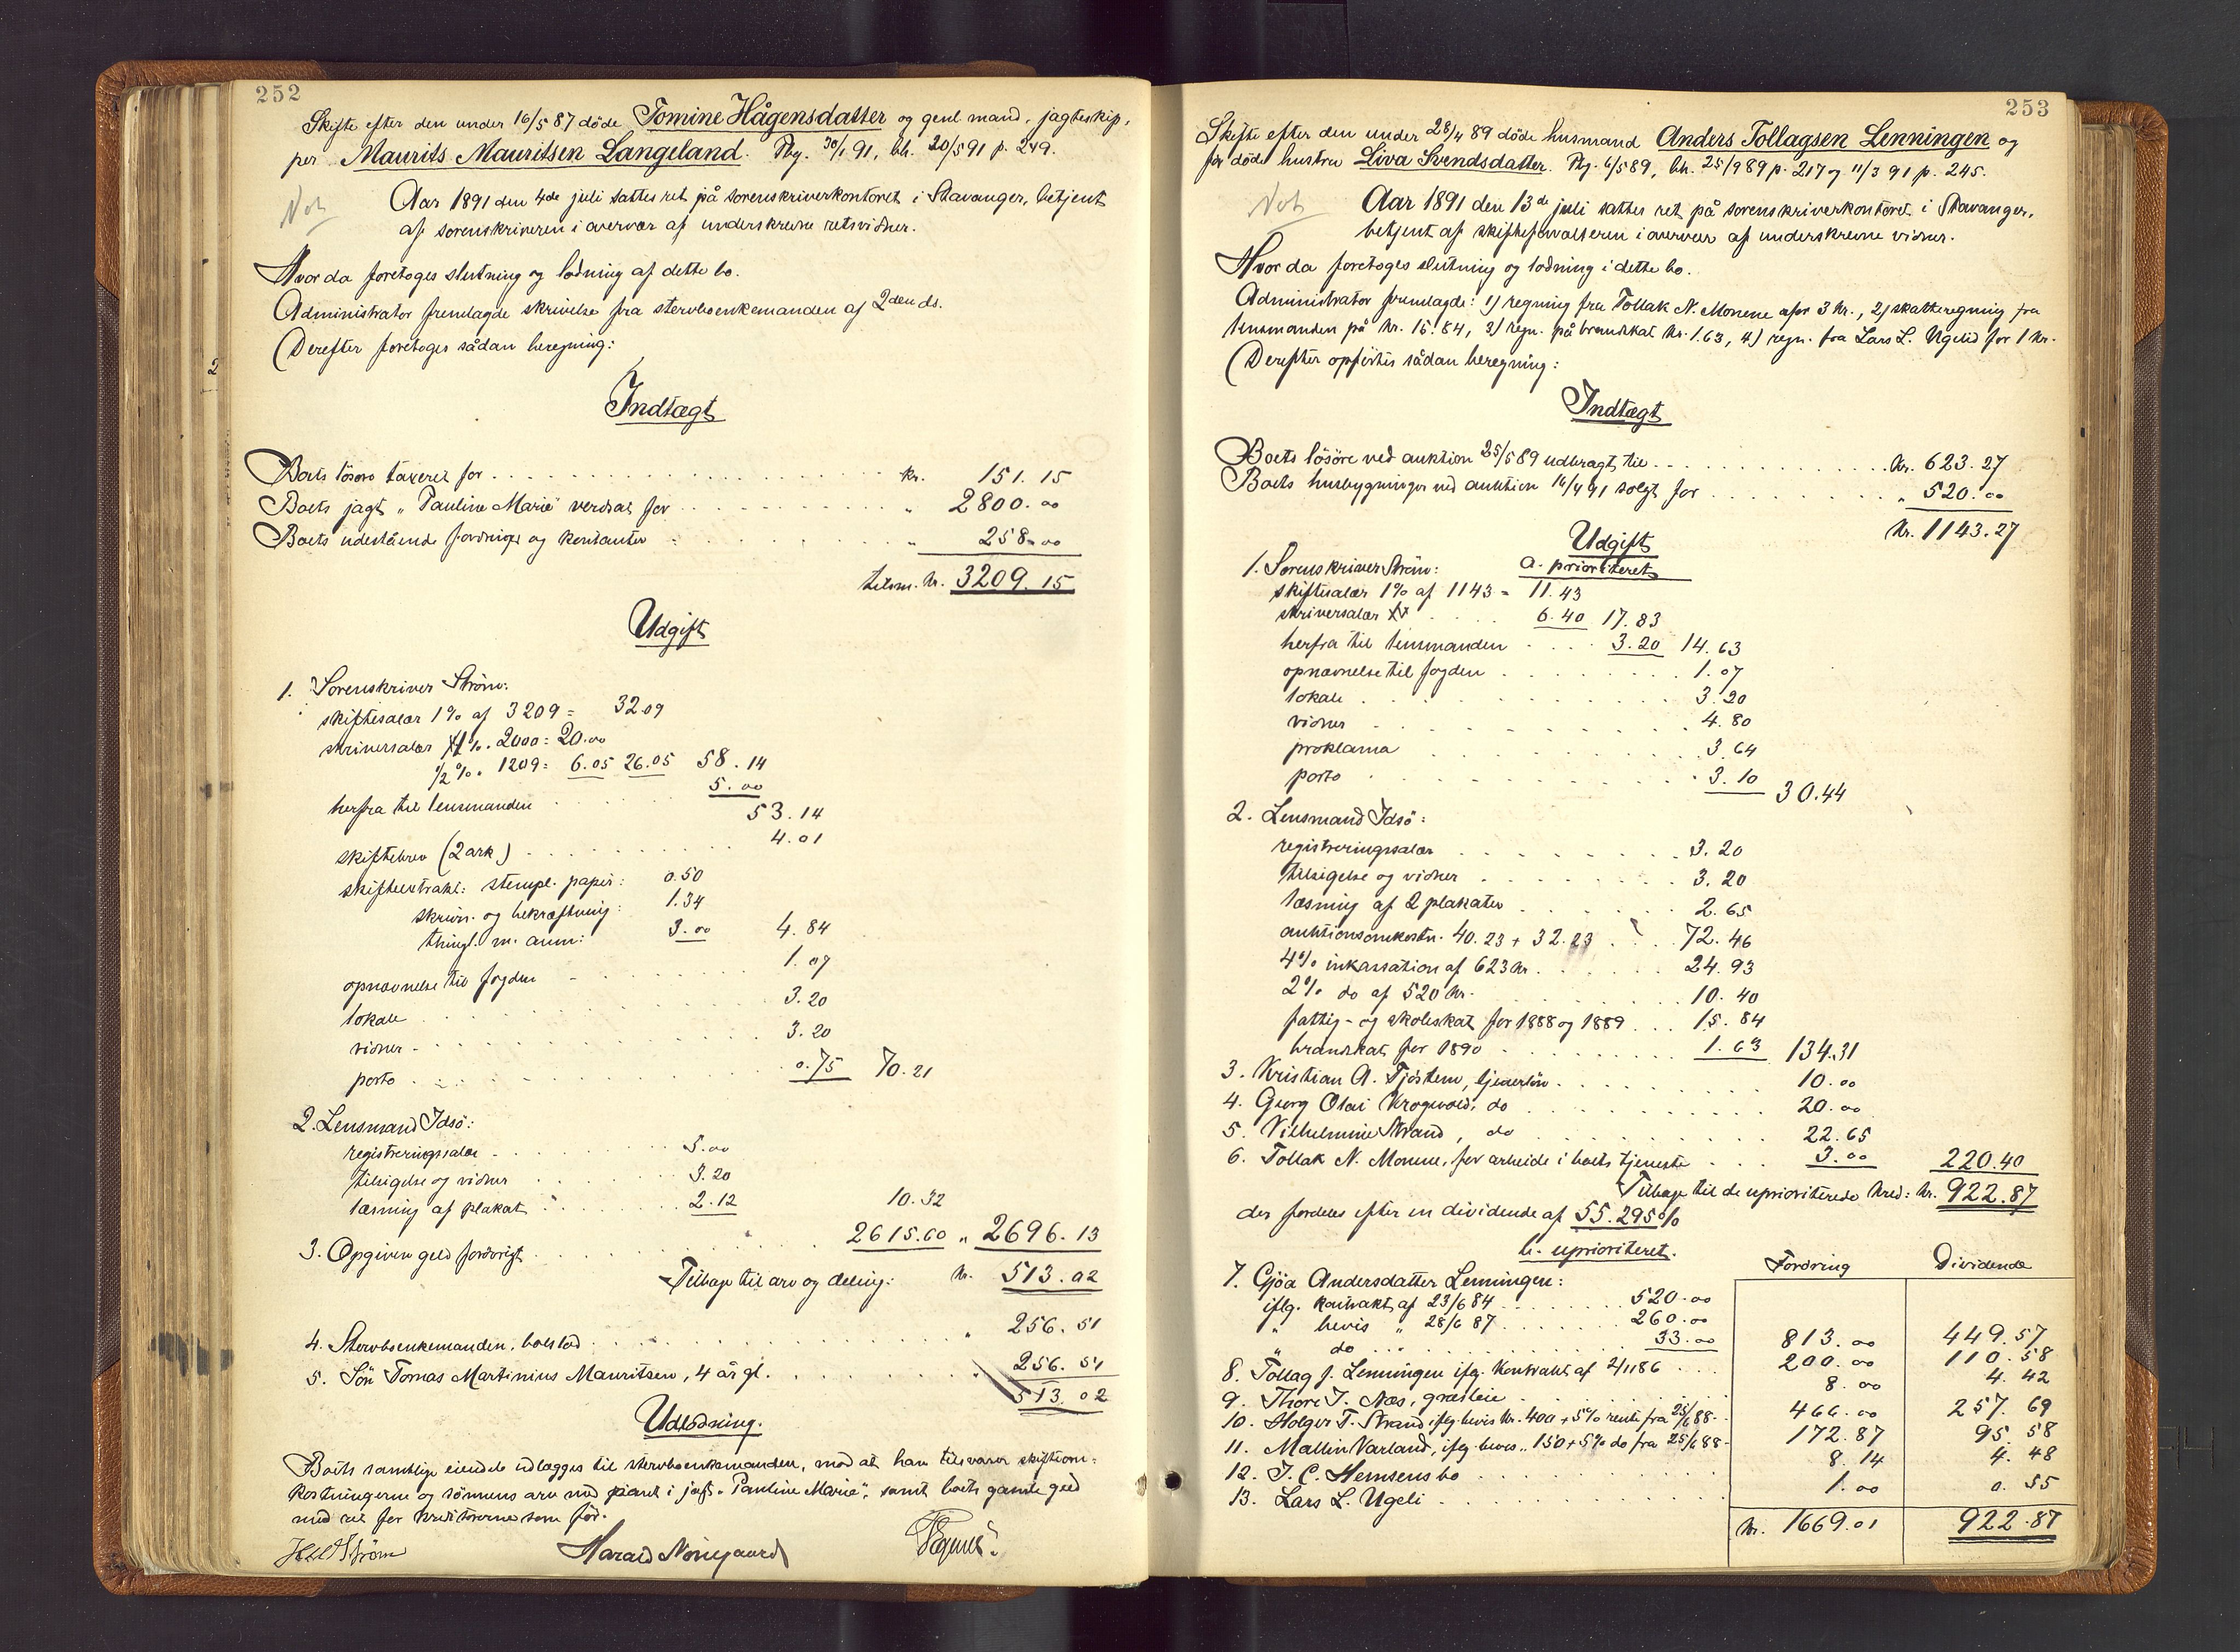 252
Skifte efter den under 16/5 87 döde Tomine Hågensdatter og genl. mand, jagteskip-
per Maurits Mauritsen Langeland. Rbg. 30/1 91, bh. 20/5 91 p. 249.
Not
Aar 1891 den 4de juli sattes ret på sorenskriverkontoret i Stavanger, betjent
af sorenskriveren i overvær af underskrevne retsvidner.
Hvor da foretoges slutning og lodning af dette bo.
Administrator fremlagde skrivelse fra stervboenkemanden af 2den ds.
Derefter foretoges sådan beregning:
Indtægt
Boets lösöre taxeret for . . . kr. 151.15
Boets jagt "Pauline Marie" verdsat for . . . " 2800.00
Boets udestående fordringer og kontanter . . . " 258.00
tilsm. kr. 3209.15
Udgift
1. Sorenskriver Ström:
skiftesalær 1% af 3209 = 32.09
skriversalær 1% . 2000 = 20.00
1/2% . 1209 = 6.05 26.05 58.14
herfra til lensmanden . . . 5.00
53.14
skiftebrev (2 ark) . . . 4.01
skifteextrakt: stempl. papir: 0.50
skrivn. og bekræftning: 1.34
thingl. m. ann: 3.00 4.84
opnævnelse til fogden . . . 1.07
lokale . . . 3.20
vidner . . . 3.20
porto . . . 0.75 70.21
2. Lensmand Idsö:
registreringssalær . . . 5.00
tilsigelse og vidner . . . 3.20
læsning af plakat . . . 2.12 10.32
3. Opgiven gjeld forövrigt . . . 2615.60 " 2696.13
Tilbage til arv og deling: kr. 513.02
4. Stervboenkemanden, boeslod . . . " 256.51
5. Sön Tomas Martinius Mauritsen, 4 år gl. . . . " 256.51
513.02
Udlodning.
Boets samtlige eiendele udlægges til stervboenkemanden, mod at han tilsvarer skifteom-
kostningerne og sönnens arv med pant i jagt "Pauline Marie", samt boets gamle gjeld
med ret for kreditorerne som för.
Ström Harald Noregaard
253
Skifte efter den under 28/4 89 döde husmand Anders Tollagsen Lenningen og
för döde hustru Liva Svendsdatter. Rbg. 6/5 89, bh. 25/9 89 p. 217 og 11/3 91 p. 245.
Not
Aar 1891 den 13de juli sattes ret på sorenskriverkontoret i Stavanger,
betjent af skifteforvalteren i overvær af underskrevne vidner.
Hvor da foretoges slutning og lodning i dette bo.
Administrator fremlagde: 1) regning fra Tollak N. Monene stor 3 kr., 2) skatteregning fra
lensmanden på kr. 15.84, 3) regn. på brandskat kr. 1.63, 4) regn. fra Lars L. Ugelid for 1 kr.
Derefter opförtes sådan beregning:
Indtægt
Boets lösöre ved auktion 25/5 89 udbragt til . . . kr. 623.27
Boets husbygninger ved auktion 16/4 91 solgt for . . . " 520.00
kr. 1143.27
Udgift
a. prioriteret
1. Sorenskriver Ström:
skiftesalær 1% af 1143 = 11.43
skriversalær . . . 6.40 17.83
herfra til lensmanden . . . 3.20 14.63
opnævnelse til fogden . . . 1.07
lokale . . . 3.20
vidner . . . 4.80
proklama . . . 3.64
porto . . . 3.10 30.44
2. Lensmand Idsö:
registreringssalær . . . 3.20
tilsigelse og vidner . . . 3.20
læsning af 2 plakater . . . 2.65
auktionsomkostn. 40.23 + 32.23 . . . 72.46
4% inkassation af 623 kr. . . . 24.93
2% do af 520 kr. . . . 10.40
fattig- og skoleskat for 1888 og 1889 . . . 15.84
brandskat for 1890 . . . 1.63 134.31
3. Kristian A. Tjöstem, tjenerlön . . . 10.00
4. Georg Olai Krogevold, do . . . 20.00
5. Vilhelmine Strand, do . . . 22.65
6. Tollak N. Monene, for arbeide i boets tjeneste . . . 3.00 220.40
Tilbage til de uprioriterede kred: kr. 922.87
der fordeles efter en dividende af 55.295 %
b. uprioriteret.
Fordring Dividende
7. Gjöa Andersdatter Lenningen:
iflg. kontrakt af 23/6 84 . . . 520.00
" bevis " 28/6 87 . . . 260.00
" do . . . 33.00 813.00 449.57
8. Tollag J. Lenningen iflg. kontrakt af 2/11 86 . . . 200.00 110.58
9. Thore T. Næs, græsleie . . . 8.00 4.42
10. Holger T. Strand iflg. bevis kr. 400 + 5% rente fra 25/6 88 . . 466.00 257.69
11. Mallin Varland, iflg. bevis " 150 + 5% do fra 25/6 88 . 172.87 95.58
12. J. C. Hemsens bo . . . 8.14 4.48
13. Lars L. Ugeli . . . 1.00 0.55
kr. 1669.01 922.87